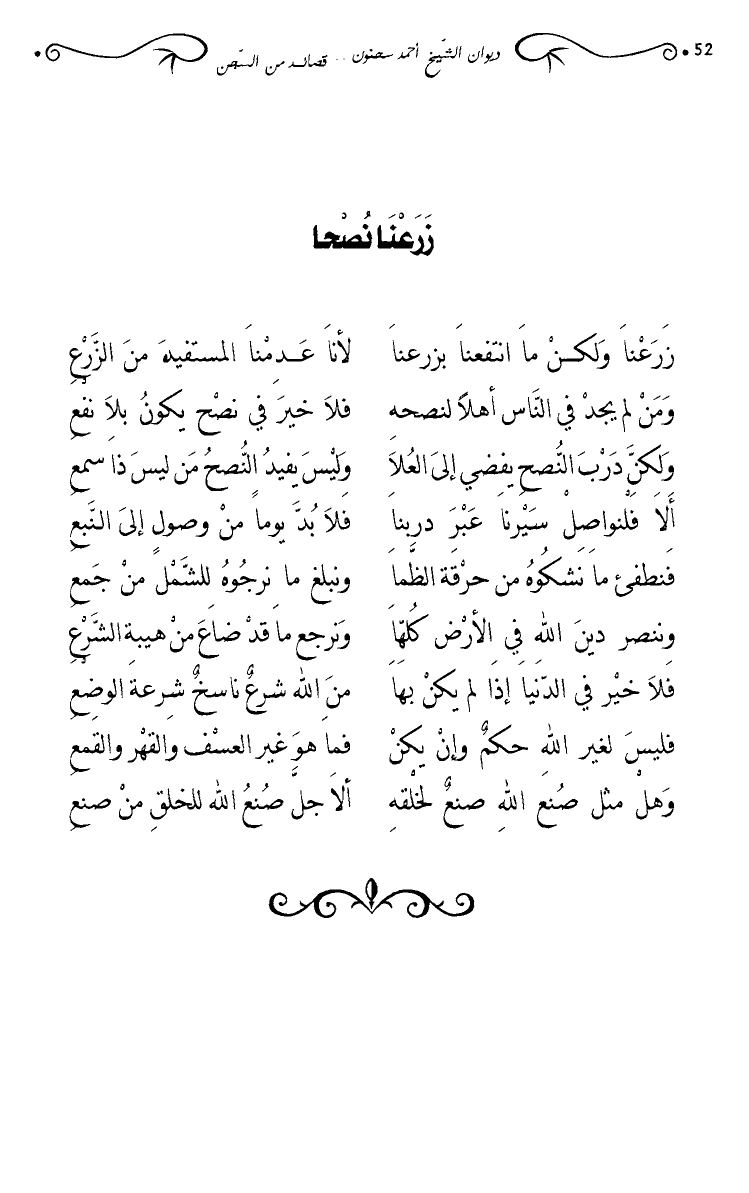 52 ديوان الشّيخ أحمد سحنون .. قصائد من السّجن
زَرَعْنَا نُصْحا
زَرَعْناَ وَلكــنْ ماَ انتفعناَ بزرعناَ لأناَ عَــدمْناَ المستفيدَ منَ الزَّرْعِ
وَمَنْ لم يجدْ في النَّاس أهلاً لنصحهِ فلاَ خيرَ في نصْح يكونُ بلاَ نفْعِ
وَلكنَّ دَرْبَ النُّصحِ يفضي إلىَ العُلاَ وَليْسَ يفيدُ النُّصحُ مَن ليسَ ذا سمعِ
أَلاَ فلْنواصلْ سَيْرناَ عَبْرَ دربناَ فلاَ بُدَّ يوماً منْ وصولٍ إلىَ النَّبعِ
فنطفئ ماَ نشكُوهُ من حرْقة الظَّماَ ونبلغ ماَ نرجُوهُ للشَّمْلِ منْ جَمعِ
وننصر دينَ اللهِ في الأرْضِ كُلهّاَ وَنرجع ماَ قدْ ضاعَ منْ هيبةِ الشَّرْعِ
فلاَ خيْر في الدّنياَ إذَا لم يكنْ بهاَ منَ الله شرعٌ ناسخٌ شرعة الوضعِ
فليسَ لغير اللهِ حكمٌ وإنْ يكنْ فماَ هوَ غير العسْف والقهْرِ والقمعِ
وَهلْ مثل صُنع اللهِ صنعٌ لخلْقهِ ألاَ جلَّ صُنعُ الله للخلقِ منْ صنعِ